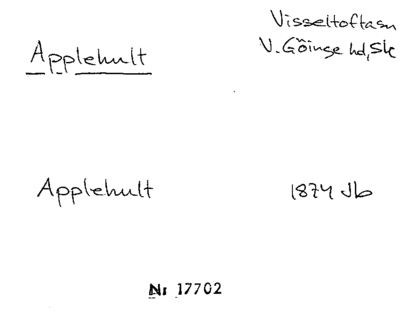 Visseltofta sn
V. Göinge hd, Sk
Applehult
Applehult 1874 Jb
Nr 17702